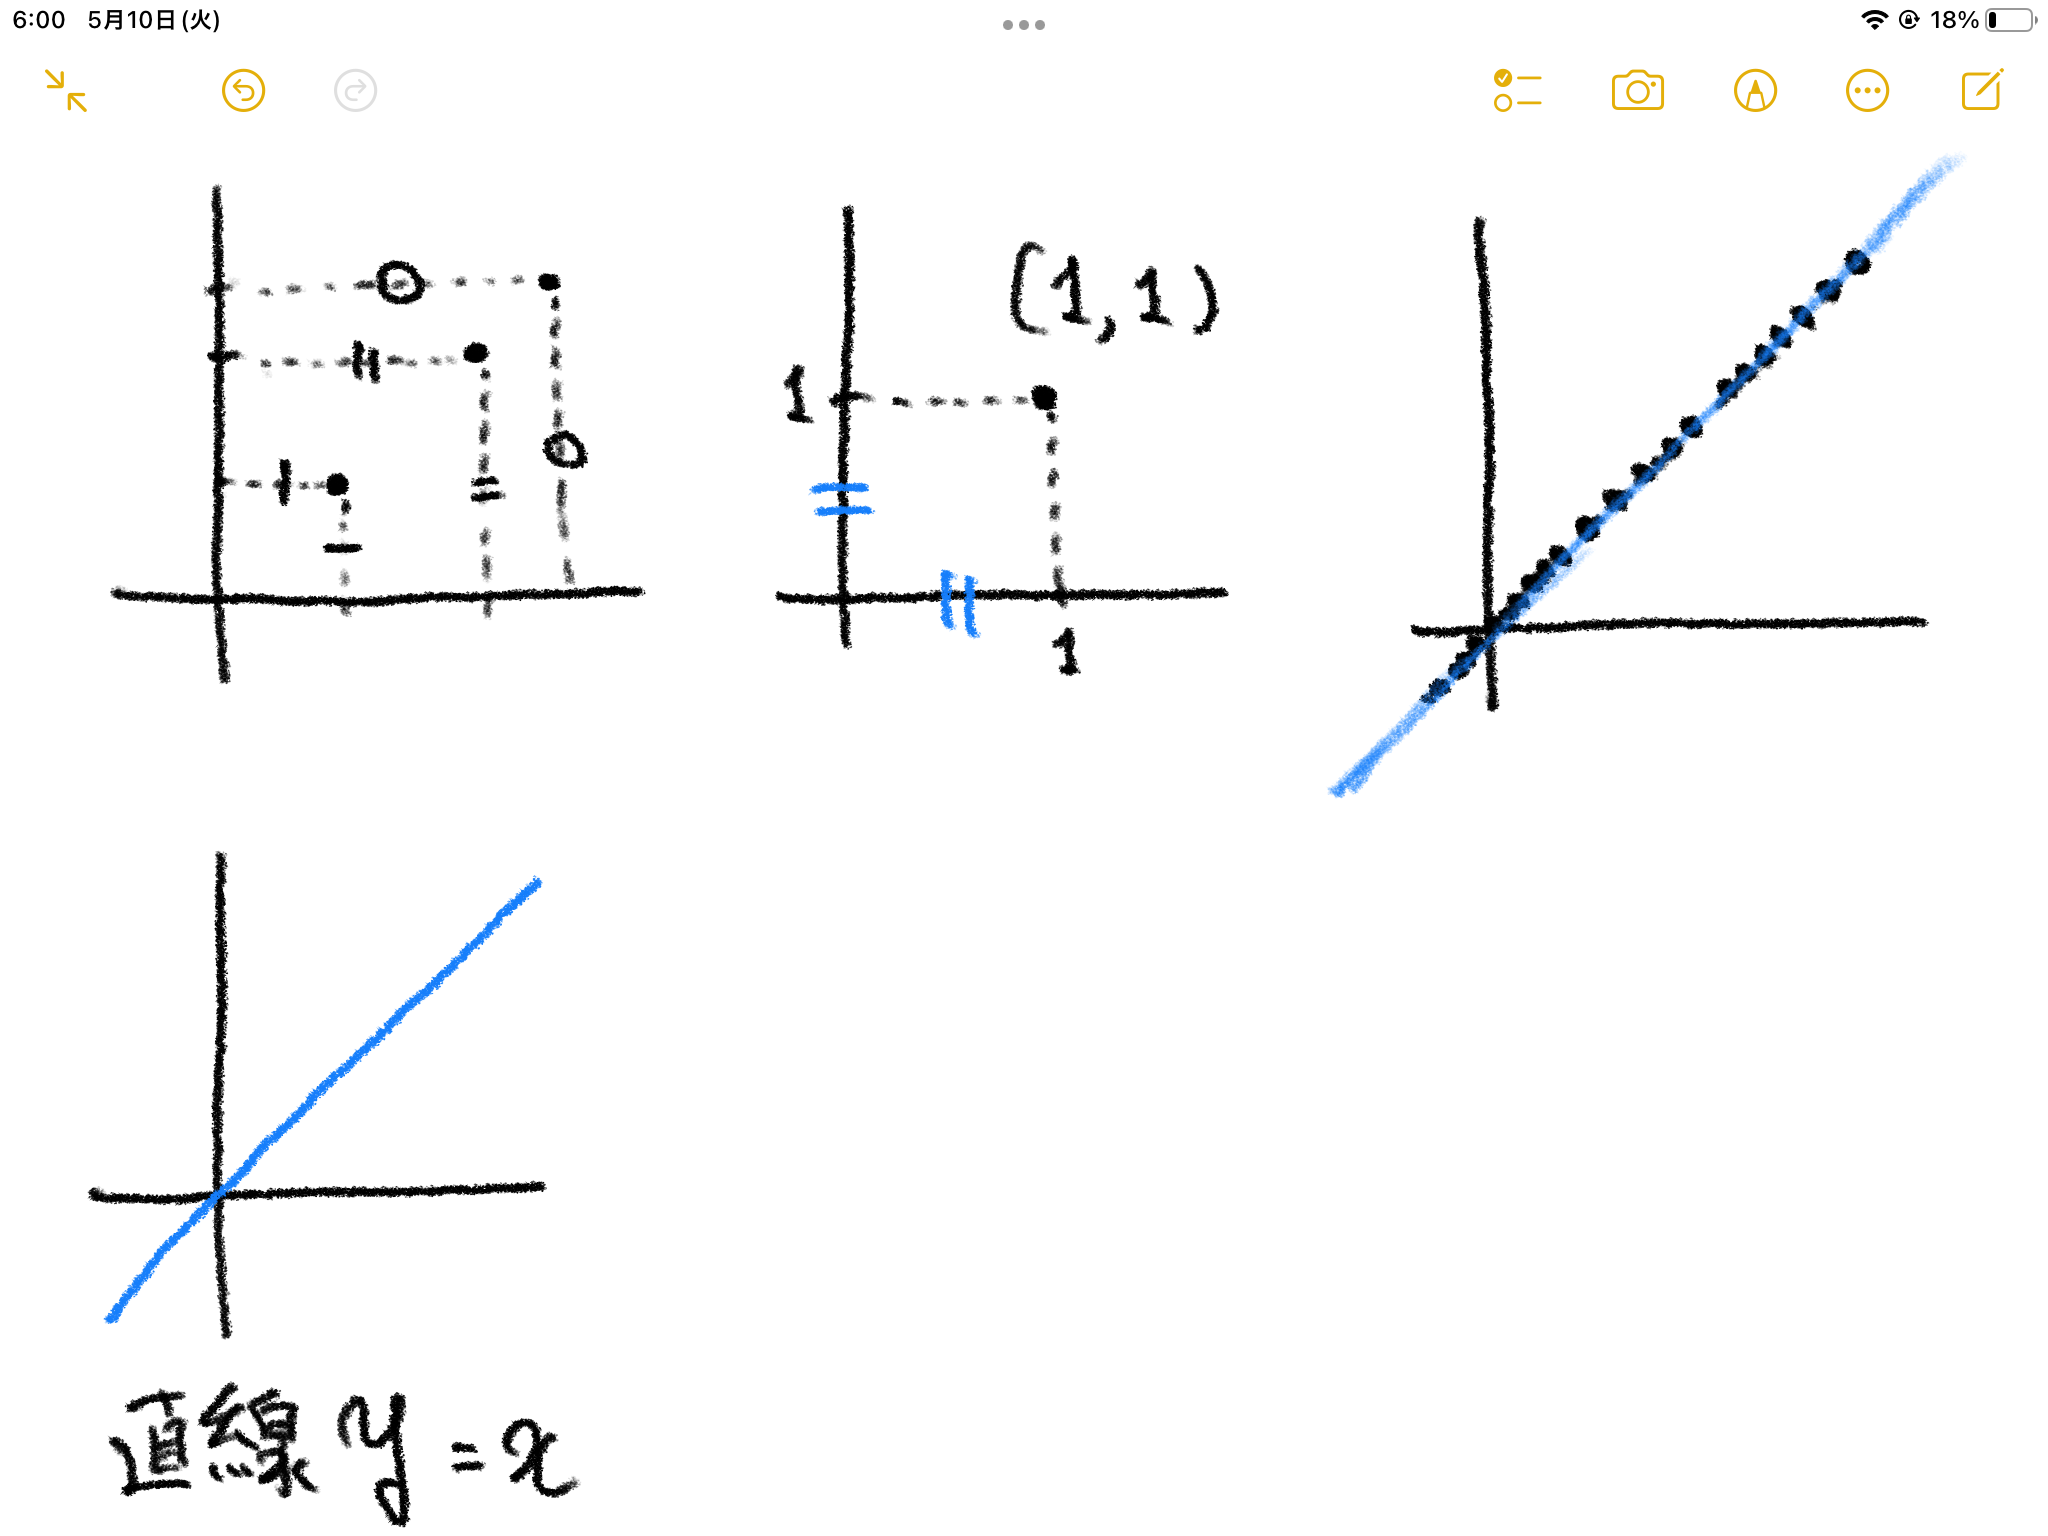 6:00 5月10日(火)
18%
(1,1)
1
1
直線 y = x